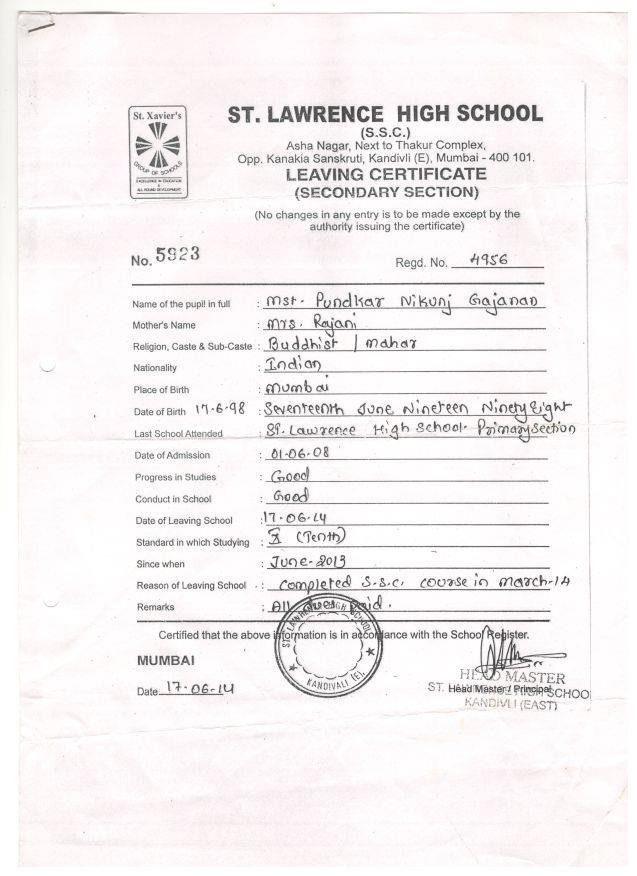 St. Xavier's
GROUP OF SCHOOLS
EXCELLENCE IN EDUCATION
&
ALL ROUND DEVELOPMENT
ST. LAWRENCE HIGH SCHOOL
(S.S.C.)
Asha Nagar, Next to Thakur Complex,
Opp. Kanakia Sanskruti, Kandivli (E), Mumbai - 400 101.
LEAVING CERTIFICATE
(SECONDARY SECTION)
(No changes in any entry is to be made except by the
authority issuing the certificate)
No. 5923
Regd. No. 4956
Name of the pupil in full : Mst. Pundkar Nikunj Gajanan
Mother's Name : Mrs. Rajani
Religion, Caste & Sub-Caste : Buddhist / Mahar
Nationality : Indian
Place of Birth : Mumbai
Date of Birth 17-6-98 : Seventeenth June Nineteen Ninety Eight
Last School Attended : St. Lawrence High School. Primary Section
Date of Admission : 01-06-08
Progress in Studies : Good
Conduct in School : Good
Date of Leaving School : 17-06-14
Standard in which Studying : X (Tenth)
Since when : June-2013
Reason of Leaving School : Completed S.S.C. course in March-14
Remarks : All dues paid.
Certified that the above information is in accordance with the School Register.
MUMBAI
Date 17-06-14
ST. LAWRENCE HIGH SCHOOL
KANDIVALI (E).
HEAD MASTER
Head Master / Principal
ST. LAWRENCE HIGH SCHOOL
KANDIVLI (EAST)